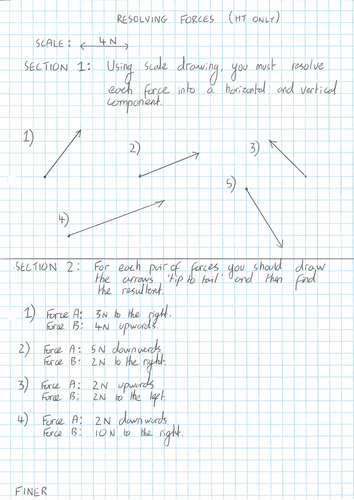 RESOLVING FORCES (HT ONLY)
SCALE: 4N
SECTION 1: Using scale drawing, you must resolve
each force into a horizontal and vertical
component.
1)
2)
3)
4)
5)
SECTION 2: For each pair of forces you should draw
the arrows 'tip to tail' and then find
the resultant.
1) Force A: 3N to the right.
Force B: 4N upwards.
2) Force A: 5N downwards.
Force B: 2N to the right.
3) Force A: 2N upwards.
Force B: 2N to the left.
4) Force A: 2N downwards.
Force B: 10N to the right.
FINER